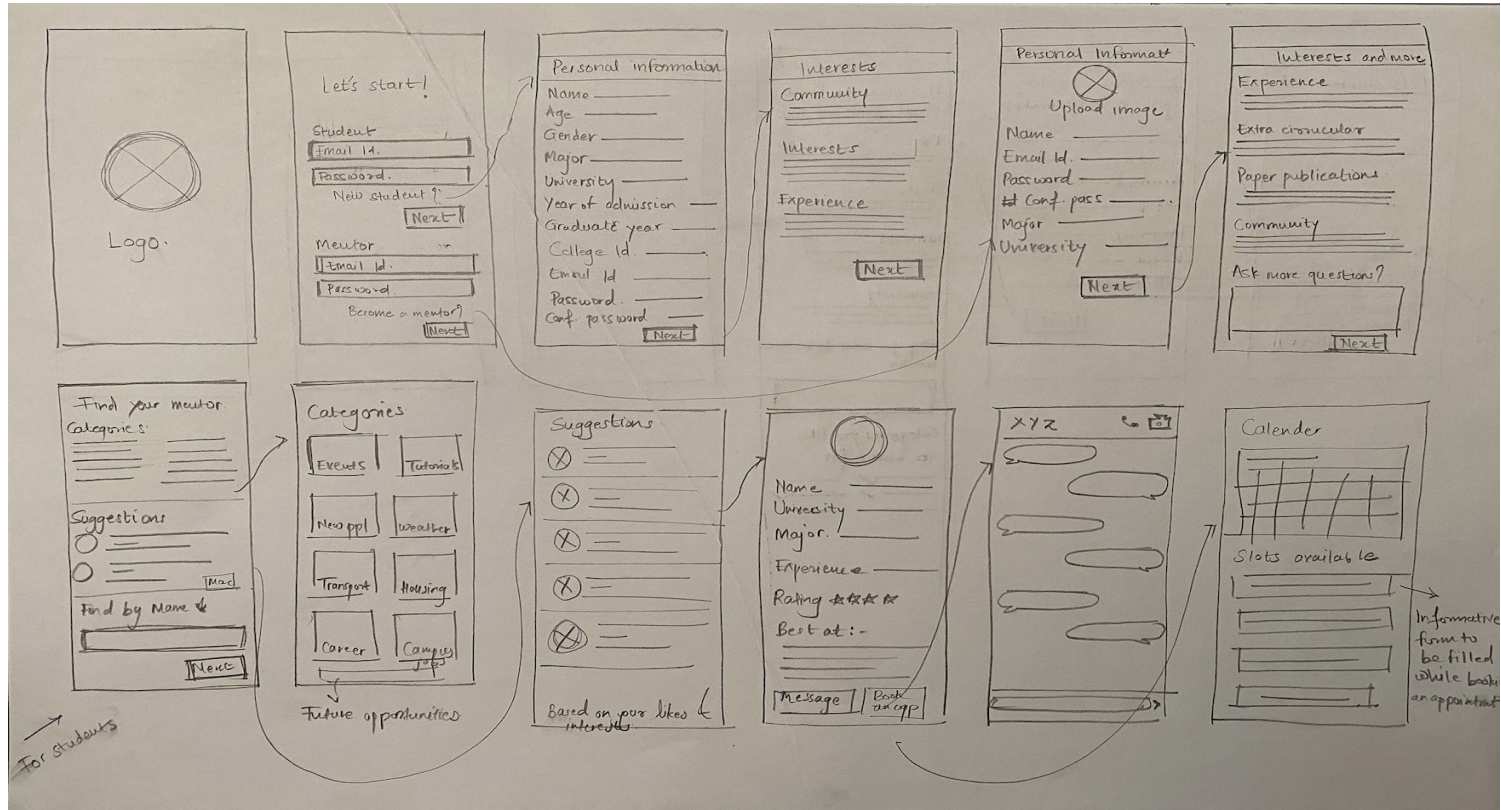 Logo.
Let's start!
Student
Email Id.
Password.
New student?
Next
Mentor
Email Id.
Password.
Become a mentor?
Next
Personal information
Name
Age
Gender
Major
University
Year of admission
Graduate year
College Id.
Email Id
Password.
Conf. password
Next
Interests
Community
Interests
Experience
Next
Personal Informat
Upload image
Name
Email Id.
Password
Conf. pass
Major
University
Next
Interests and more
Experience
Extra cirrucular
Paper publications
Community
Ask more questions?
Next
Find your mentor.
Categories
Suggestions
Find by Name
Next
Categories
Events
Tutorials
New ppl
Weather
Transport
Housing
Career
Campus
jobs
Future opportunities
Suggestions
Based on your likes &
interests
Name
University
Major.
Experience
Rating
Best at :-
Message
Book
an app
XYZ
Calender
Slots available
Informative
form to
be filled
while booki
an appointment
For students